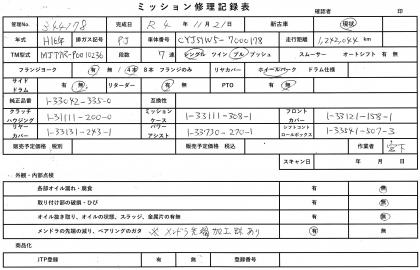 ミッション修理記録表
確認者 印
管理No. 344178 完成日 R 4 年 11月 21日 新古車 現状
年式 H16年 排ガス記号 PJ 車体番号 CYJ51W5-7000178 走行距離 1,242,044 km
TM型式 MJT7AR-P0010236 段数 7速 シングル ツイン プル プッシュ スムーサー オートシフト 有 無
フランジヨーク 有 無 4本 8本 フランジのみ リヤカバー ホイールパーク ドラム仕様
サイドドラム 有 無 リターダー 有 無 PTO 有 無
純正品番 1-33042-335-0 互換性
クラッチハウジング 1-31111-200-0 ミッションケース 1-33111-308-1 フロントカバー 1-33121-158-1
リヤーカバー 1-33131-243-1 パワーアシスト 1-33730-270-1 シフトコントロールボックス 1-33541-507-3
販売予定価格 税別 販売予定価格 税込 作業者 宮下
スキャン日 年 月 日
外観・内部点検
各部オイル漏れ・腐食 有 無
取り付け部の破損・ひび 有 無
オイル抜き取り、オイルの状態、スラッジ、金属片の有無 有 無
メンドラの先端の減り、ベアリングのガタ ※メンドラ先端加工跡あり 有 無
商品化
JTP登録 有 無 登録番号